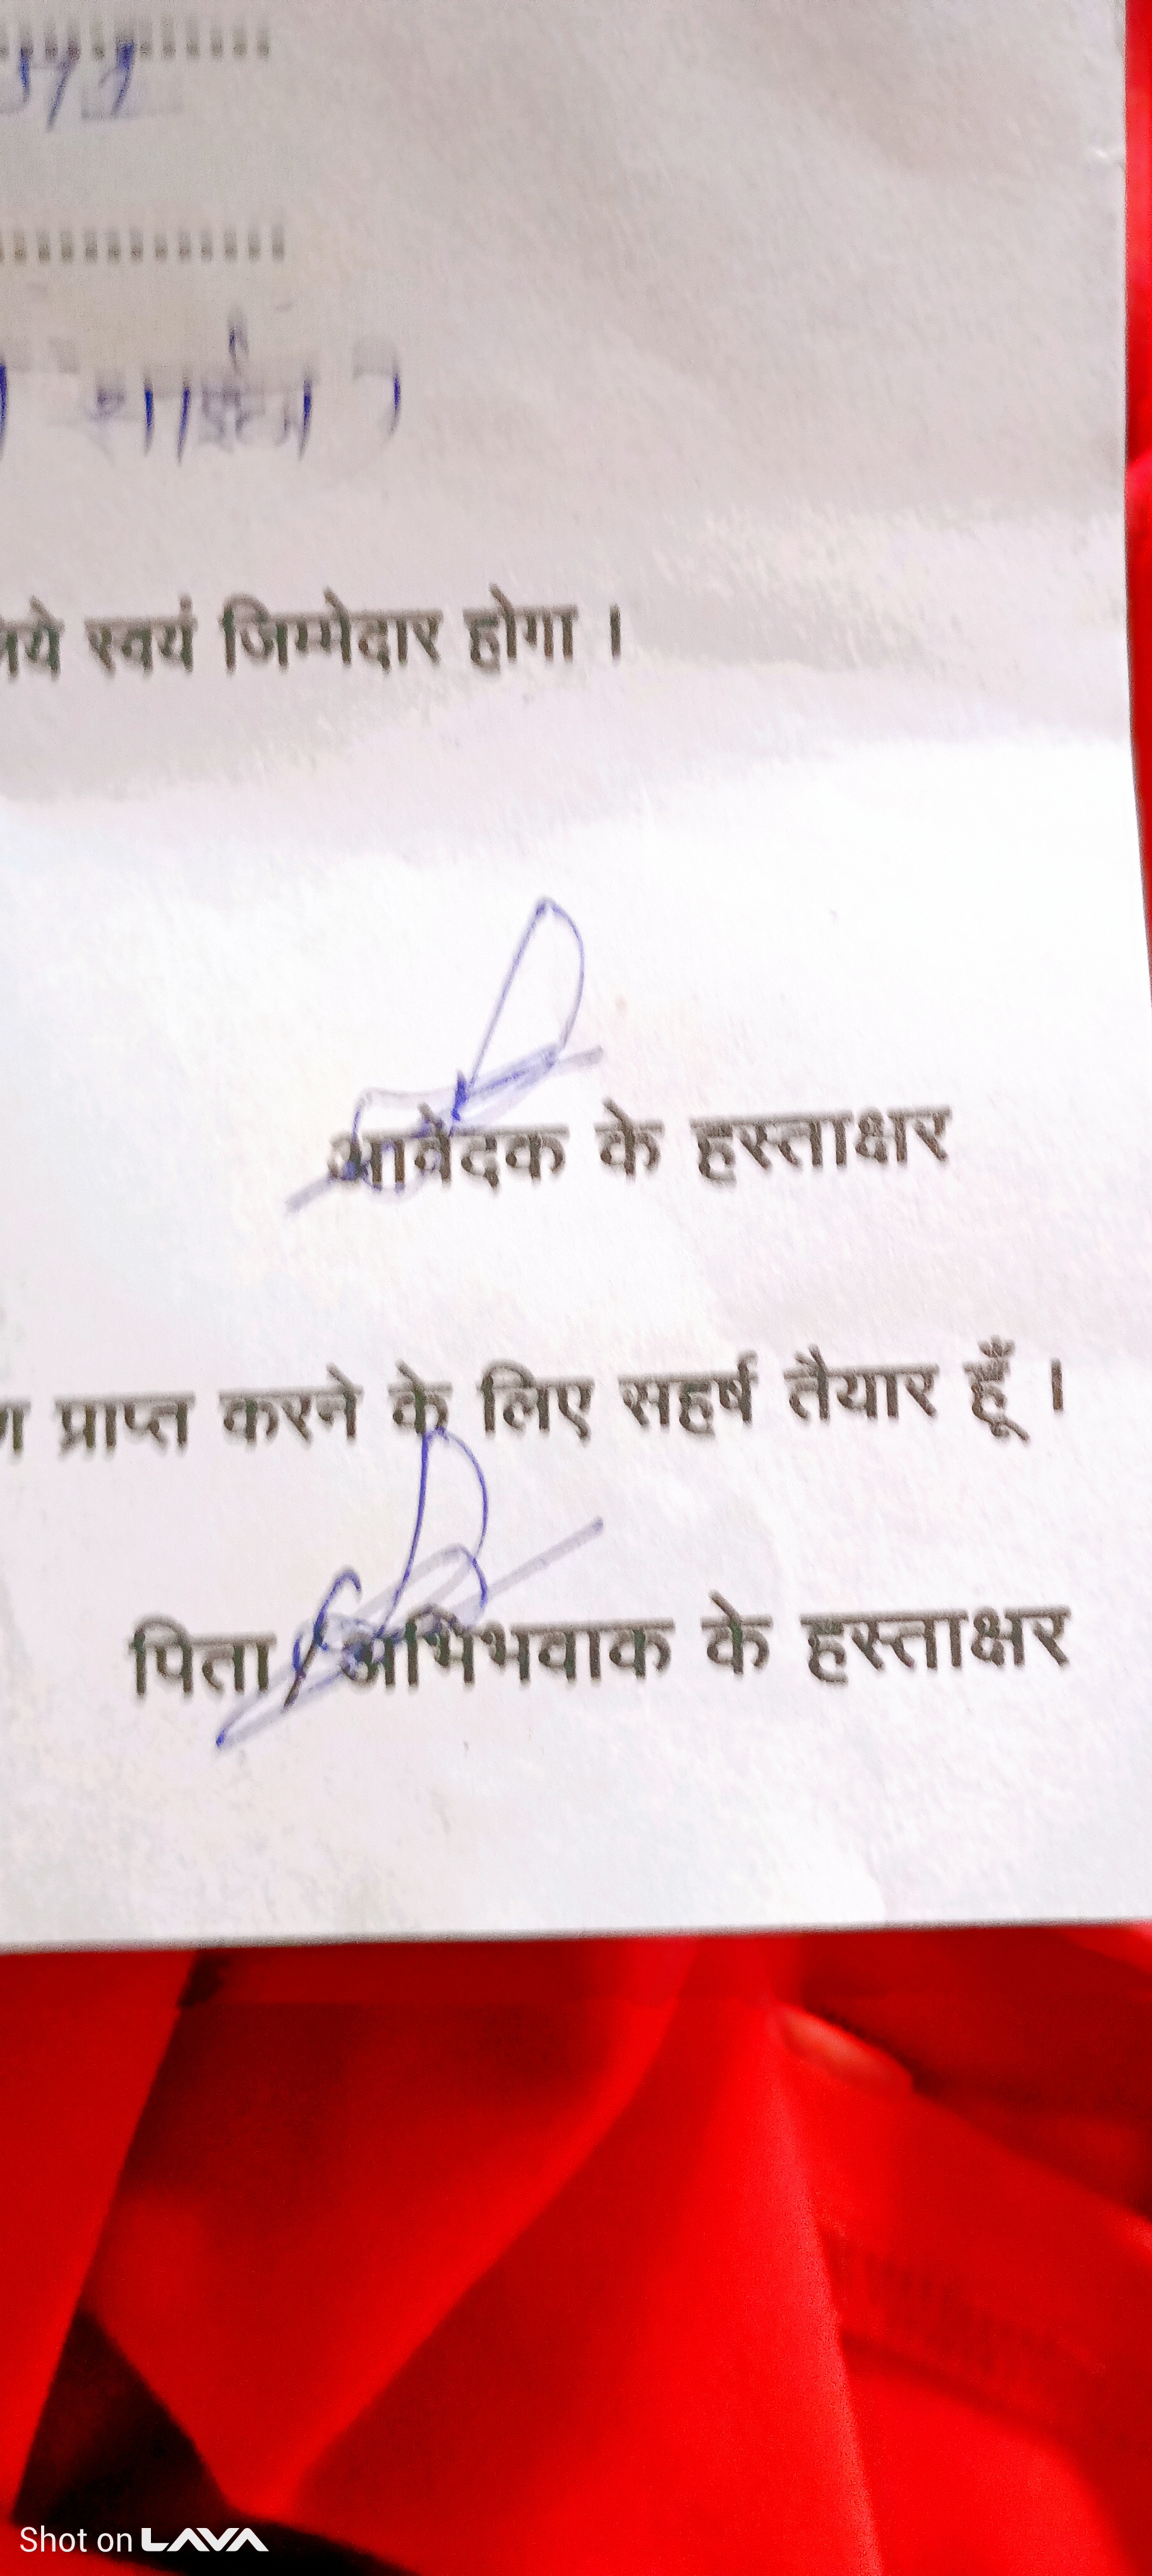 स्वयं जिम्मेदार होगा ।
आवेदक के हस्ताक्षर
प्राप्त करने के लिए सहर्ष तैयार हूँ ।
पिता / अभिभवाक के हस्ताक्षर
Shot on LAVA